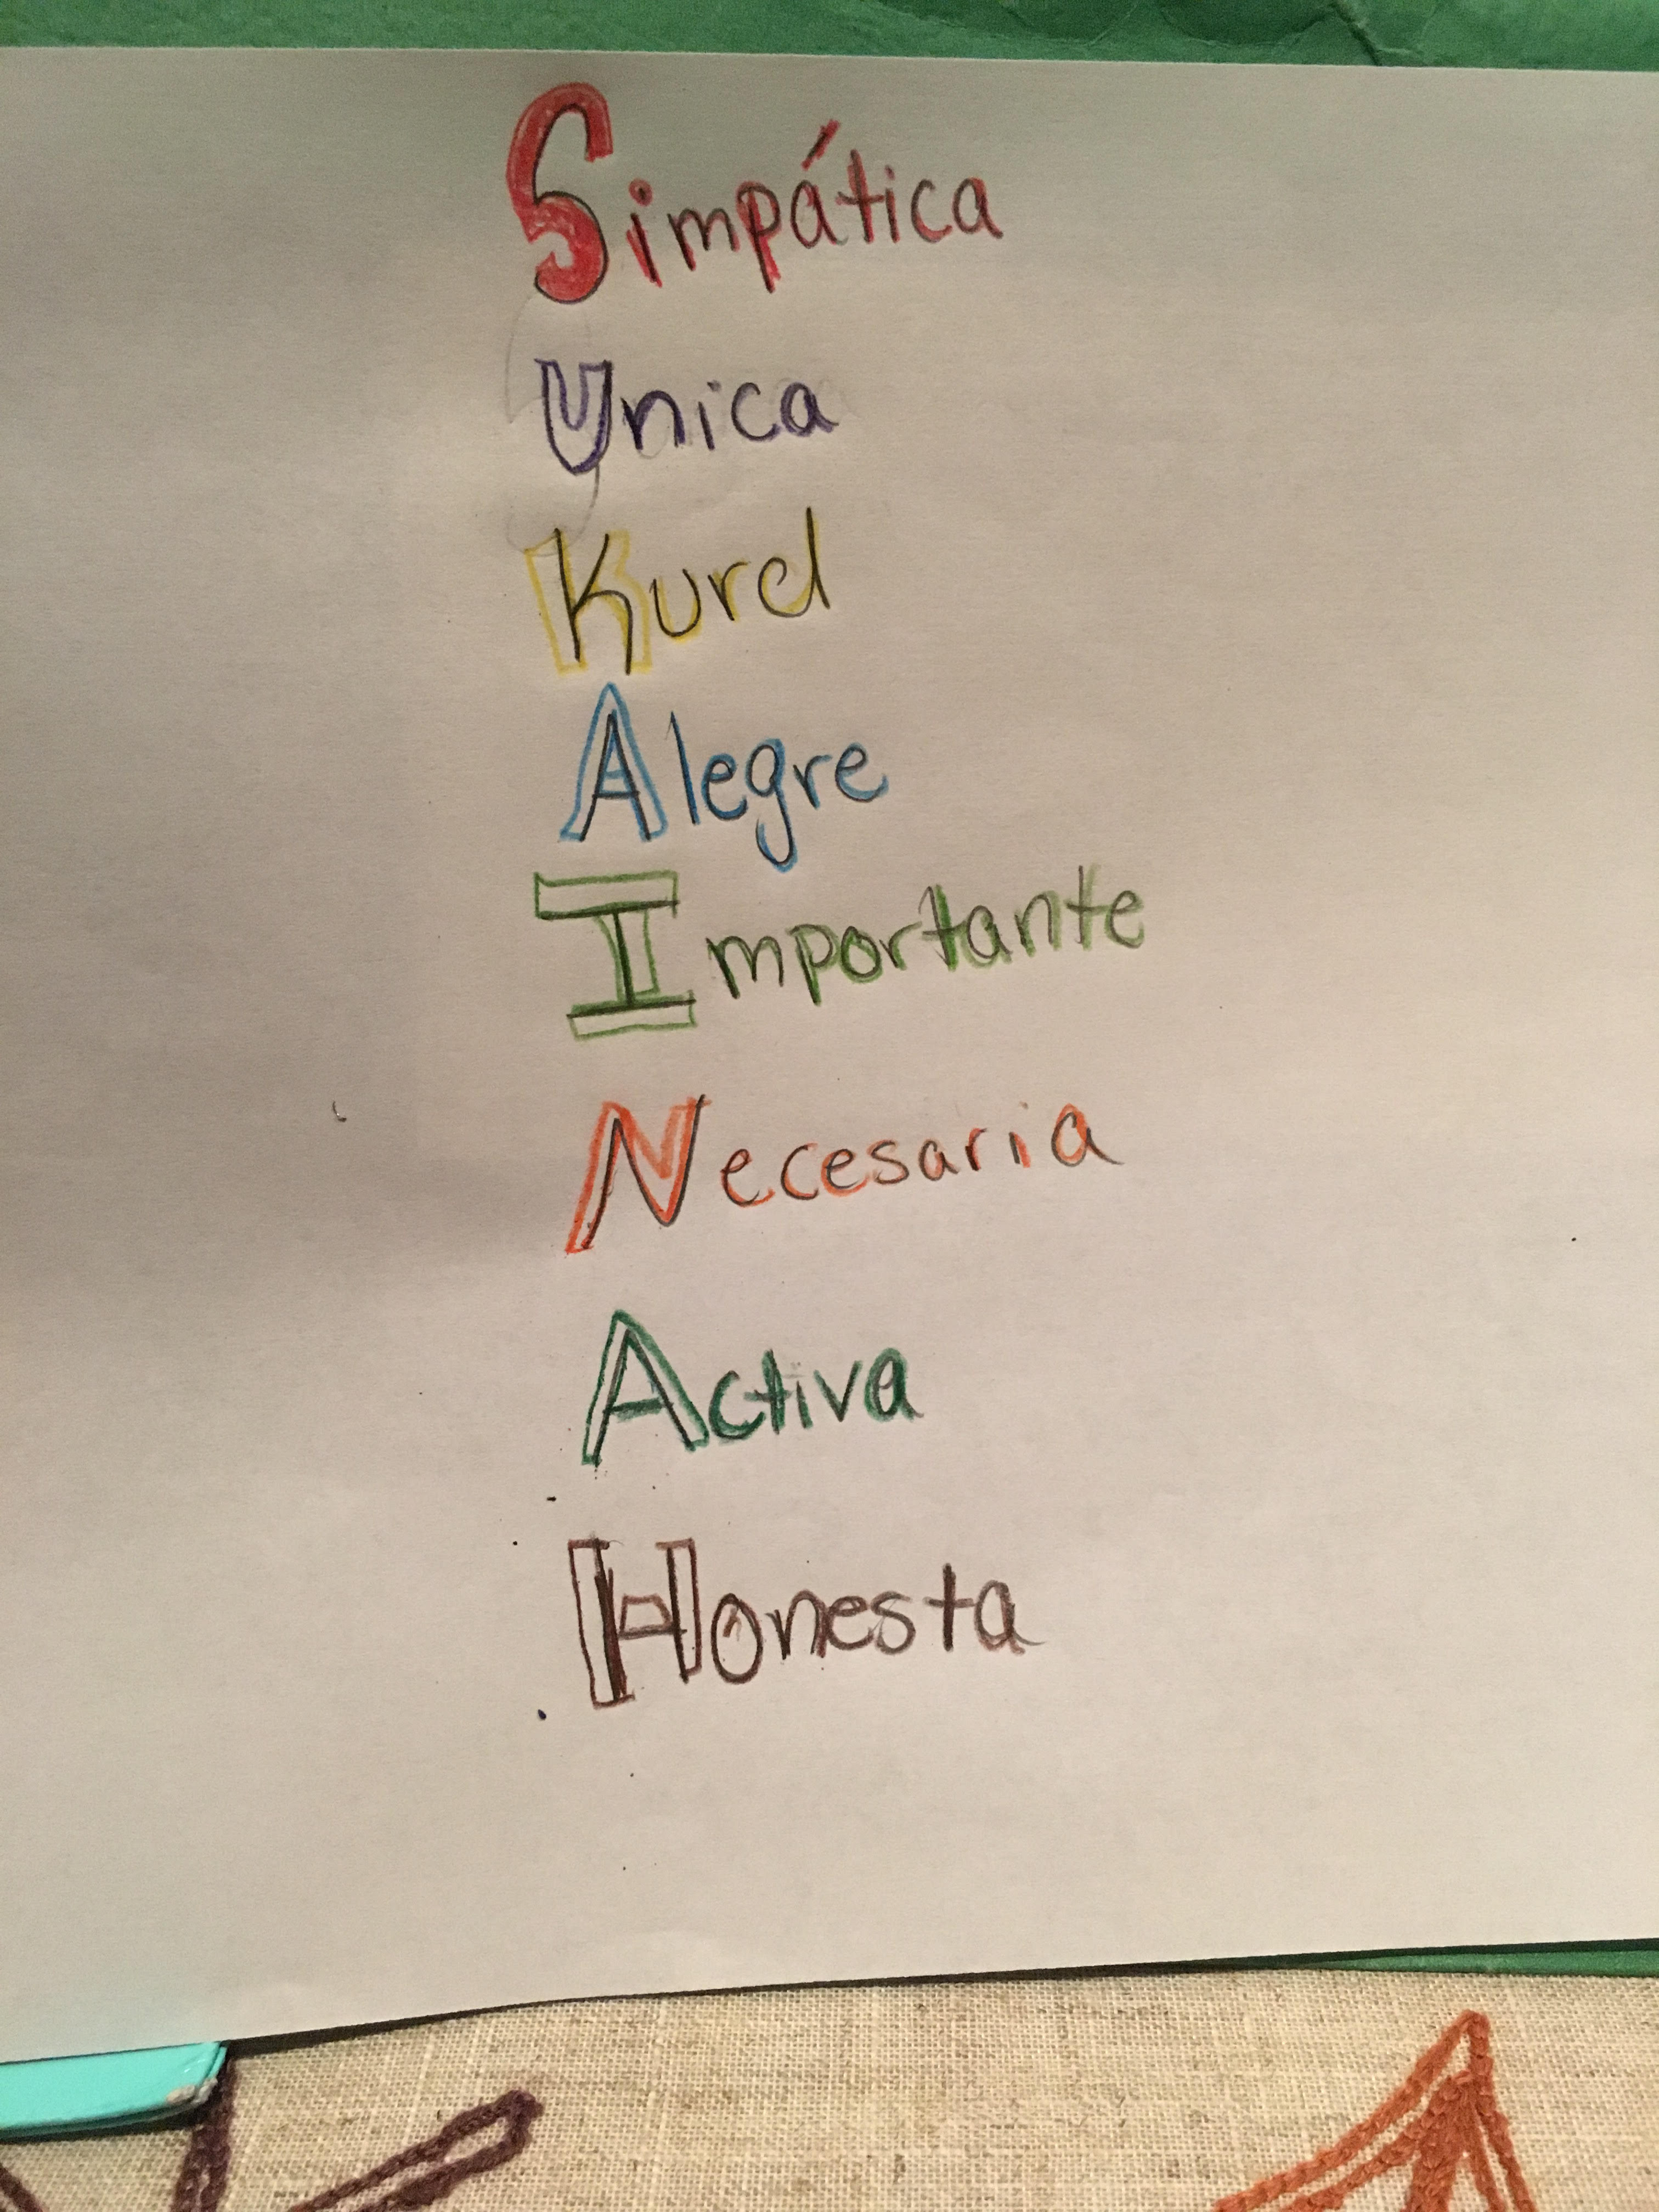 Simpática
Unica
Kurd
Alegre
Importante
Necesaria
Activa
Honesta